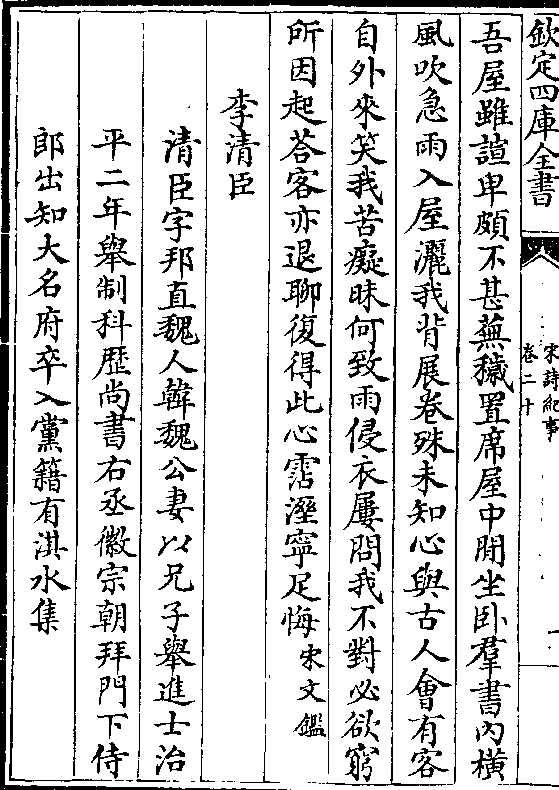 欽定四庫全書
宋詩紀事
卷二十
一
吾屋雖諠卑頗不甚蕪穢置席屋中間坐卧羣書內橫
風吹急雨入屋灑我背展卷殊未知心與古人會有客
自外來笑我苦癡昧何致雨侵衣屢問我不對必欲窮
所因起荅客亦退聊復得此心霑溼寧足悔宋文鑑
李清臣
清臣字邦直魏人韓魏公妻以兄子舉進士治
平二年舉制科歷尚書右丞徽宗朝拜門下侍
郎出知大名府卒入黨籍有淇水集